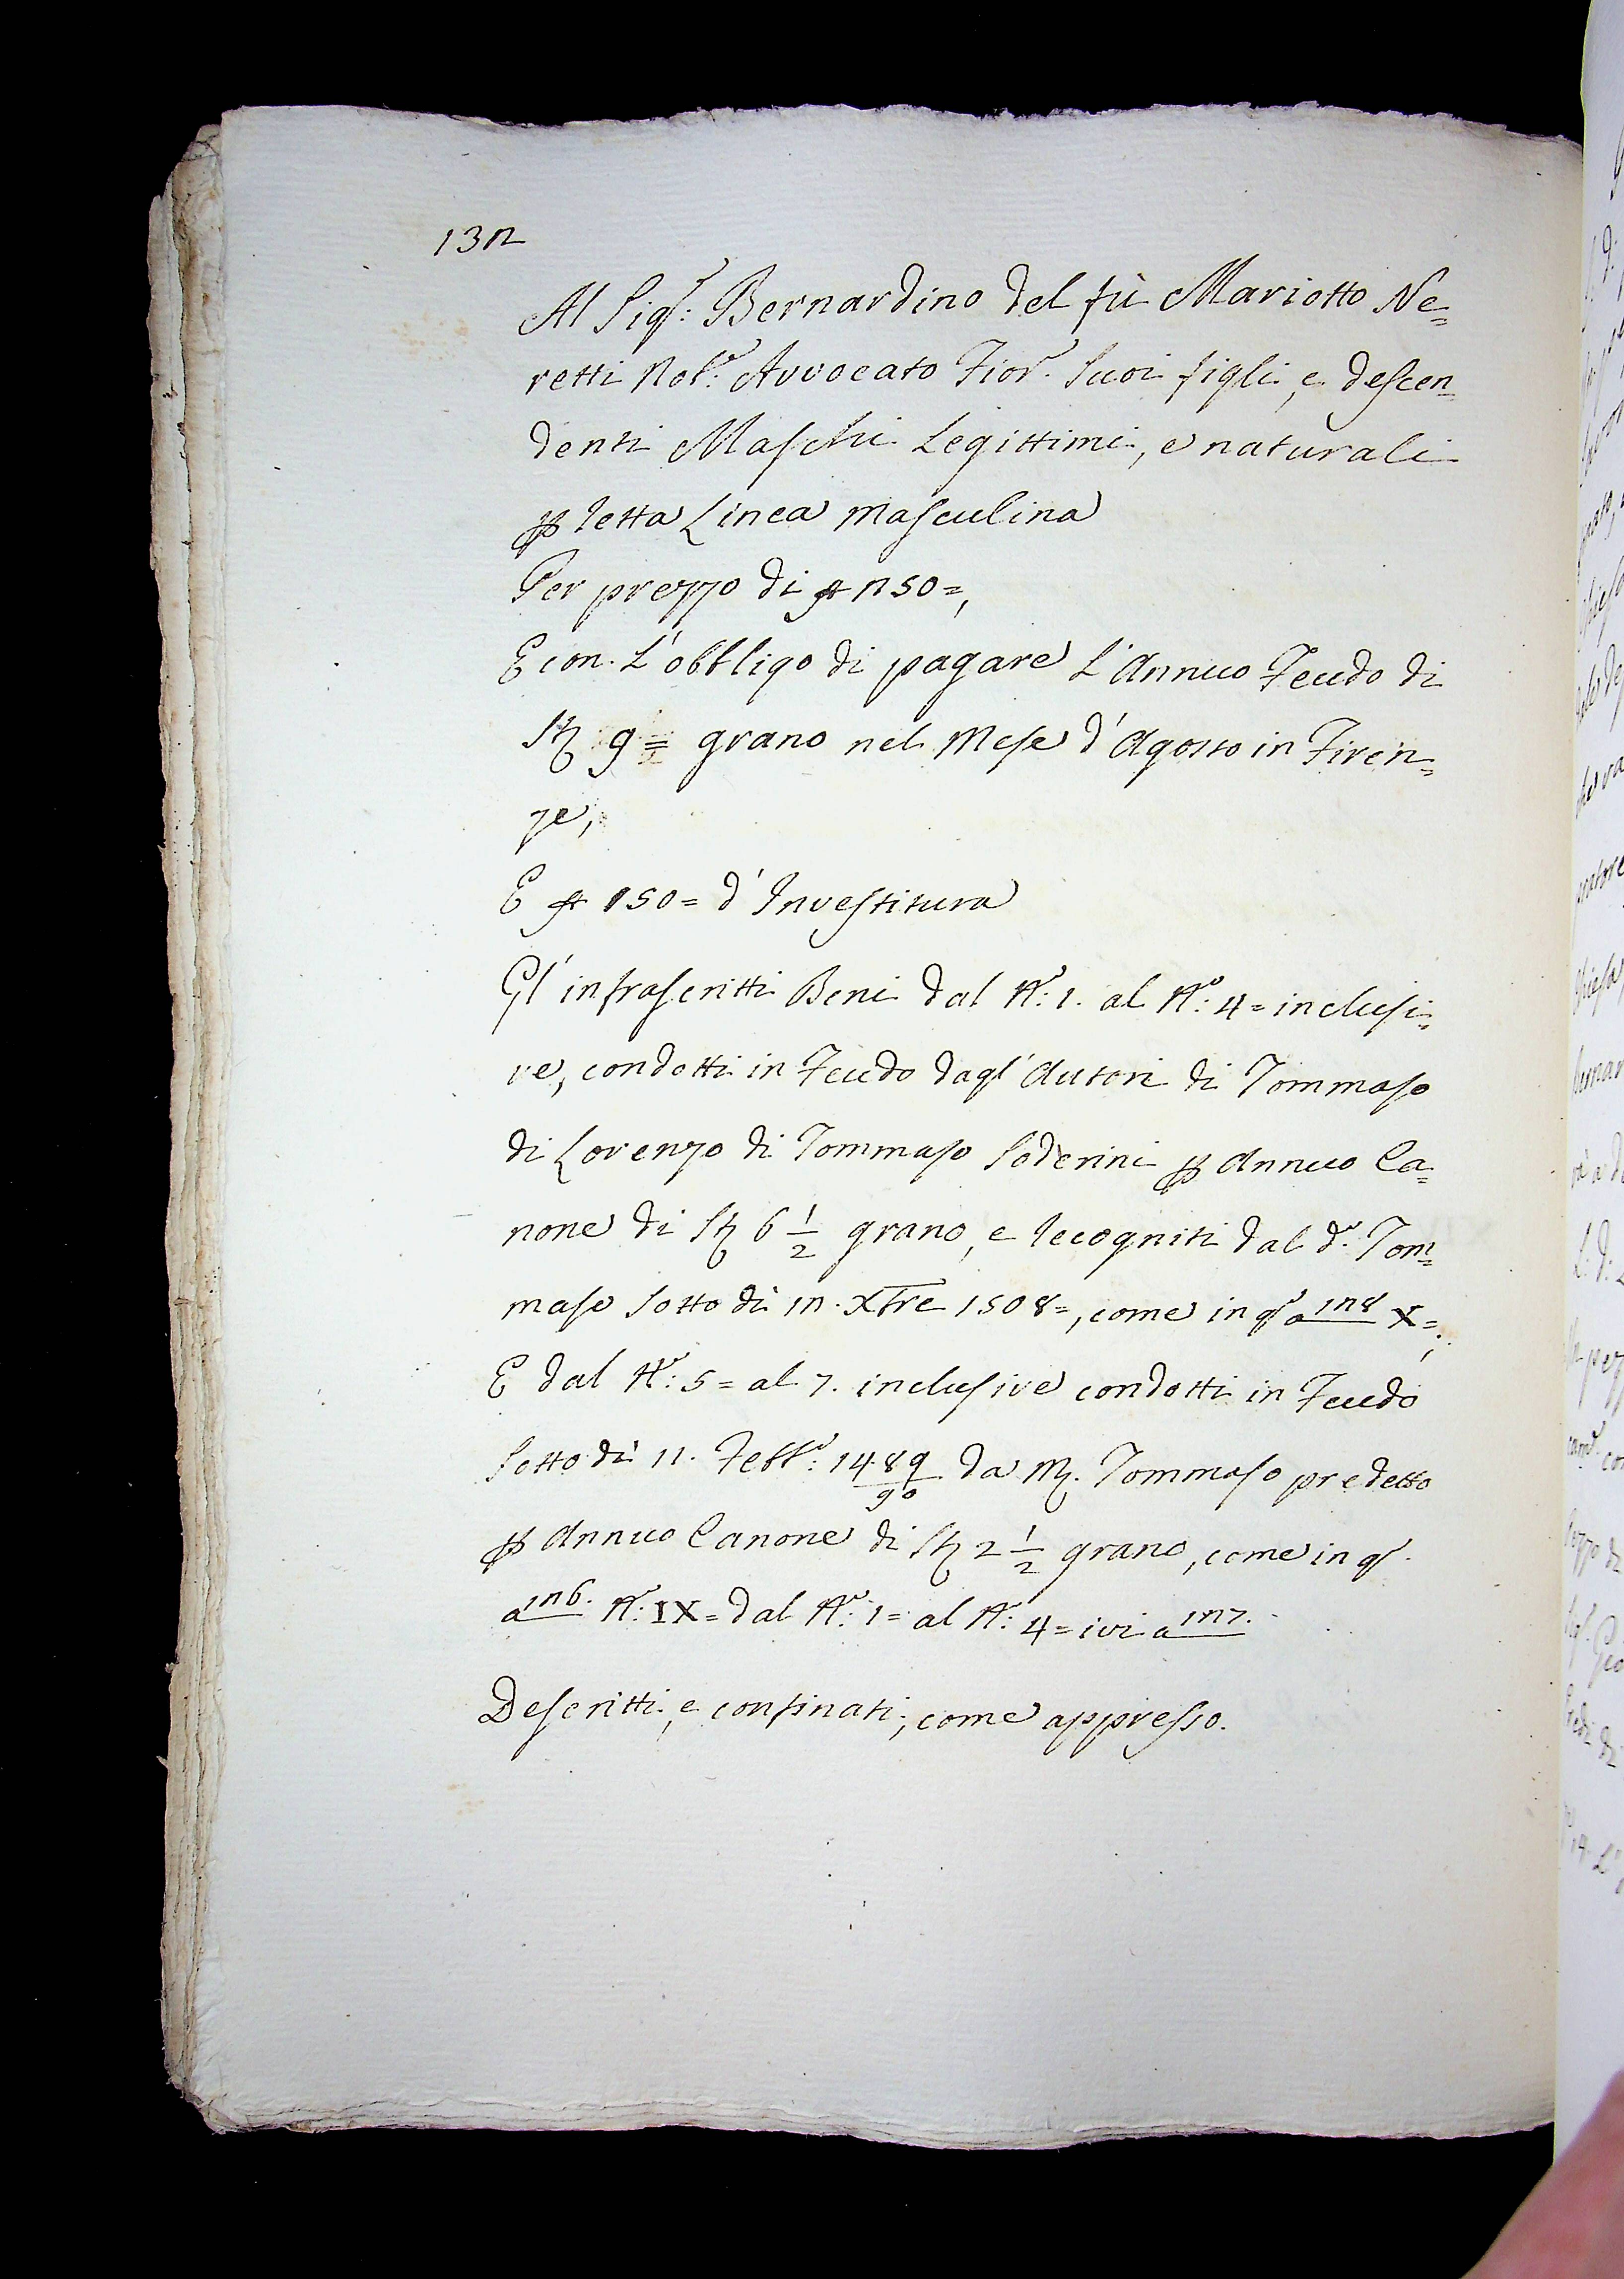 132
Al Sig.r: Bernardino del fù Mariotto Ne=
retti Nob.e: Avvocato Fior.o Suoi figli, e descen=
denti Maschi Legittimi, e naturali
p retta Linea Masculina
Per prezzo di 250=,
E con. L'obbligo di pagare L'Annuo Feudo di
St 9= grano nel Mese d'Agosto in Firen=
ze,
E 150= d'Investitura
Gl'infrascritti Beni dal N.o: 1. al N.o: 4= inclusi=
ve, condotti in Feudo dagl'Autori di Tommaso
di Lorenzo di Tommaso Soderini p Annuo Ca=
none di St 6 1/2 grano, e recogniti dal d.o Tom=
maso Sotto dì 12. Xbre 1508=, come in q.o a 128 X=;
E dal N.o: 5= al 7. inclusive condotti in Feudo
Sotto dì 11. Febb.o: 1489/90 da M. Tommaso predetto
p Annuo Canone di St 2 1/2 grano, come in q.o
a 126. N.o: IX= dal N.o: 1= al N.o: 4= ivi a 127.
Descritti, e confinati, come appresso.